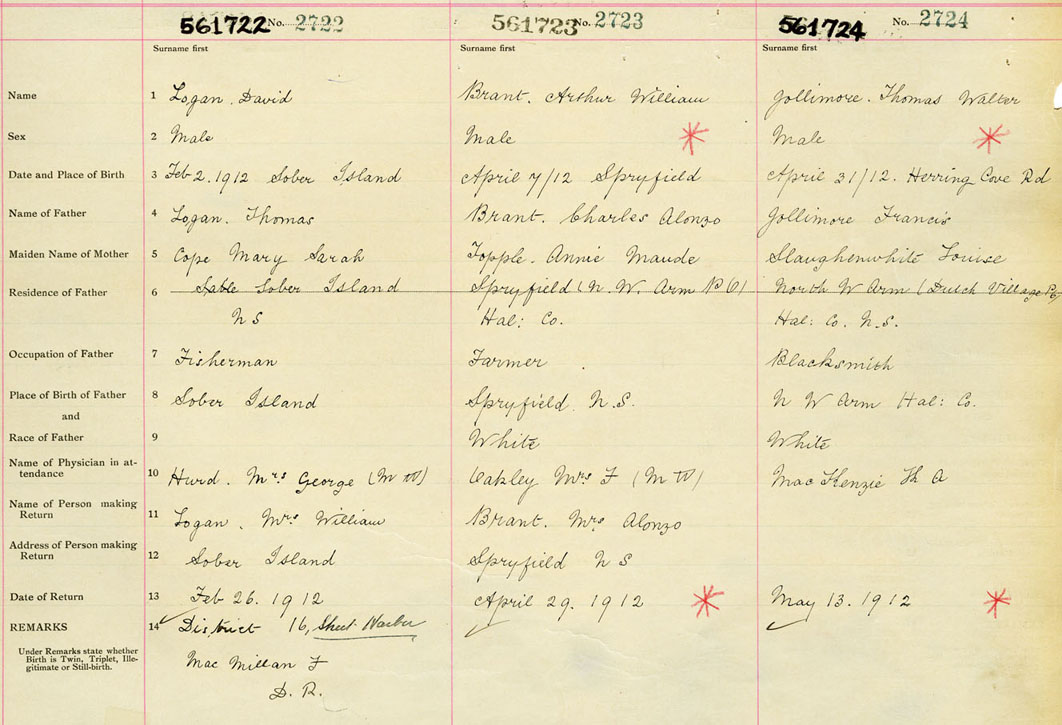 561722 No. 2722 561723 No. 2723 561724 No. 2724
Surname first Surname first Surname first
Name 1 Logan. David Brant. Arthur William Jollimore. Thomas Walter
Sex 2 Male Male Male
Date and Place of Birth 3 Feb 2. 1912 Sober Island April 7/12 Spryfield April 31/12. Herring Cove Rd
Name of Father 4 Logan. Thomas Brant. Charles Alonzo Jollimore Francis
Maiden Name of Mother 5 Cope Mary Sarah Topple. Annie Maude Slaughenwhite Louise
Residence of Father 6 Sable Sober Island Spryfield (N. W. Arm P O) North W Arm (Dutch Village
NS Hal: Co. Hal: Co. N.S.
Occupation of Father 7 Fisherman Farmer Blacksmith
Place of Birth of Father 8 Sober Island Spryfield. N.S. N W Arm Hal: Co.
and
Race of Father 9 White White
Name of Physician in at-
tendance 10 Hurd. Mrs George (M W) Oakley Mrs F (M W) MacKenzie A
Name of Person making
Return 11 Logan. Mrs William Brant. Mrs Alonzo
Address of Person making
Return 12 Sober Island Spryfield N S
Date of Return 13 Feb 26. 1912 April 29. 1912 May 13. 1912
REMARKS 14 District 16, Sheet Harbor
Under Remarks state whether
Birth is Twin, Triplet, Ille-
gitimate or Still-birth.
MacMillan F
D. R.